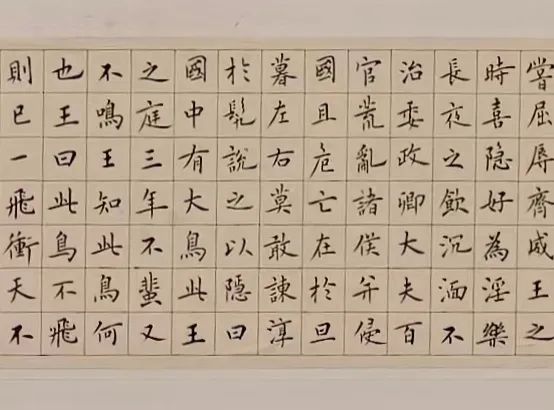 嘗屈辱齊威王之
時喜隐好為淫樂
長夜之飲沉湎不
治委政卿大夫百
官荒亂諸侯并侵
國且危亡在於旦
暮左右莫敢諫淳
於髡說之以隱曰
國中有大鳥此王
之庭三年不蜚又
不鳴王知此鳥何
也王曰此鳥不飛
則已一飛衝天不